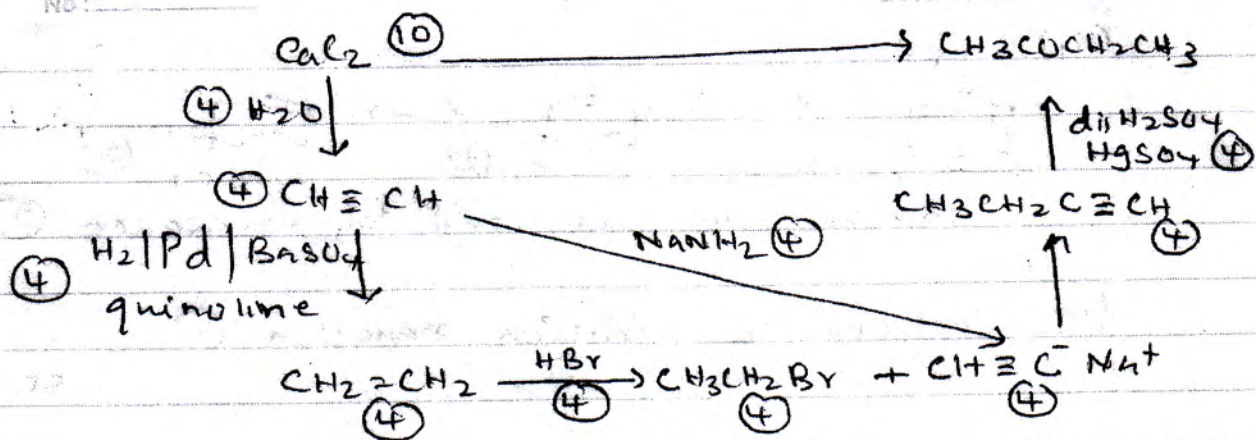 No:
CaC2 ⑩ → CH3COCH2CH3
④ H2O ↓
↑ dil H2SO4
HgSO4 ④
④ CH ≡ CH
CH3CH2C ≡ CH
④
NaNH2 ④
④ H2/Pd/BaSO4 ↓
quinoline
CH2=CH2 HBr → CH3CH2Br + CH ≡ C⁻ Na⁺
④ ④ ④ ④